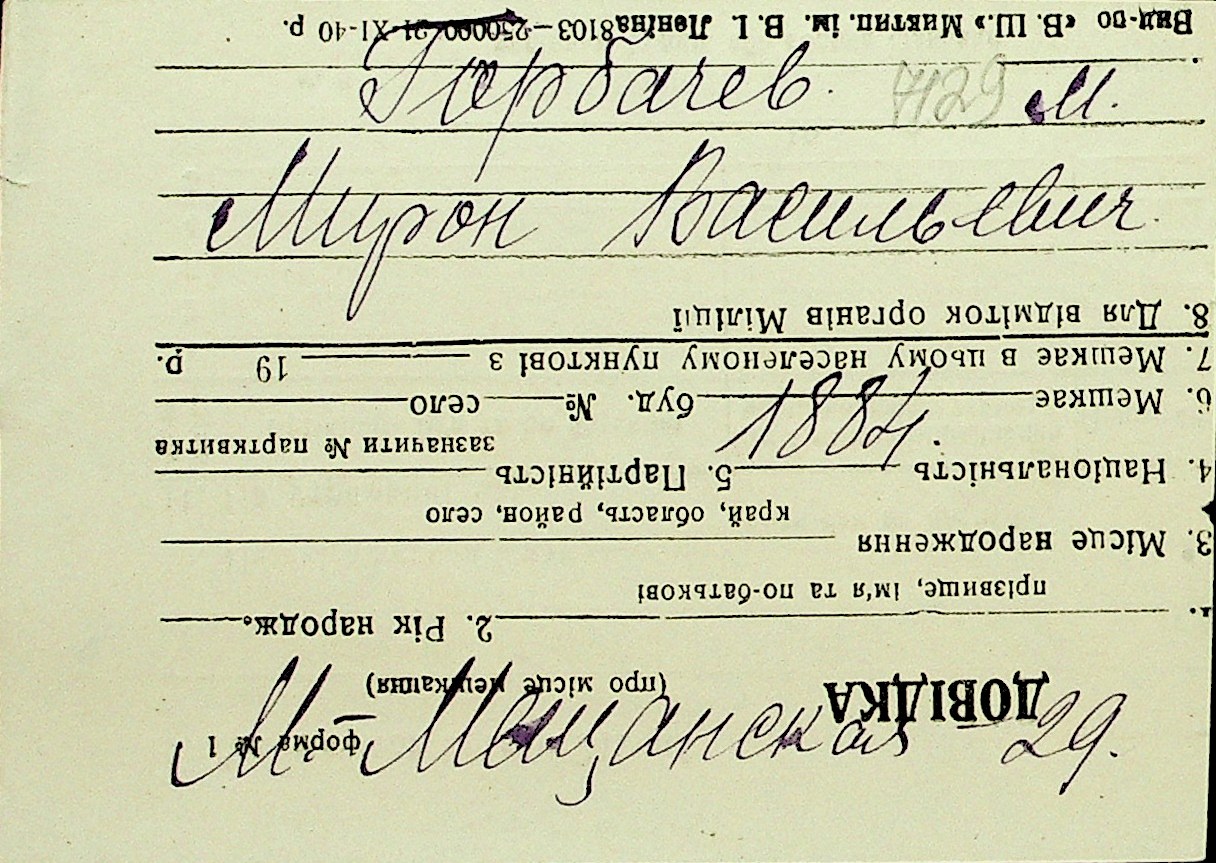 Горбачев М.
Мирон Васильевич
1884.
М. Мещанская 29.
форма № 1
ДОВІДКА
(про місце мешкання)
1. 2. Рік народж.
прізвище, ім'я та по-батькові
3. Місце народження
край, область, район, село
4. Національність 5. Партійність
зазначити № партквитка
6. Мешкає буд. № село
7. Мешкає в цьому населеному пунктові з 19 р.
8. Для відміток органів Міліції
Вид-во «В. Ш.» Миктип. ім. В. І. Леніна 8103—250000 21-XI-40 р.